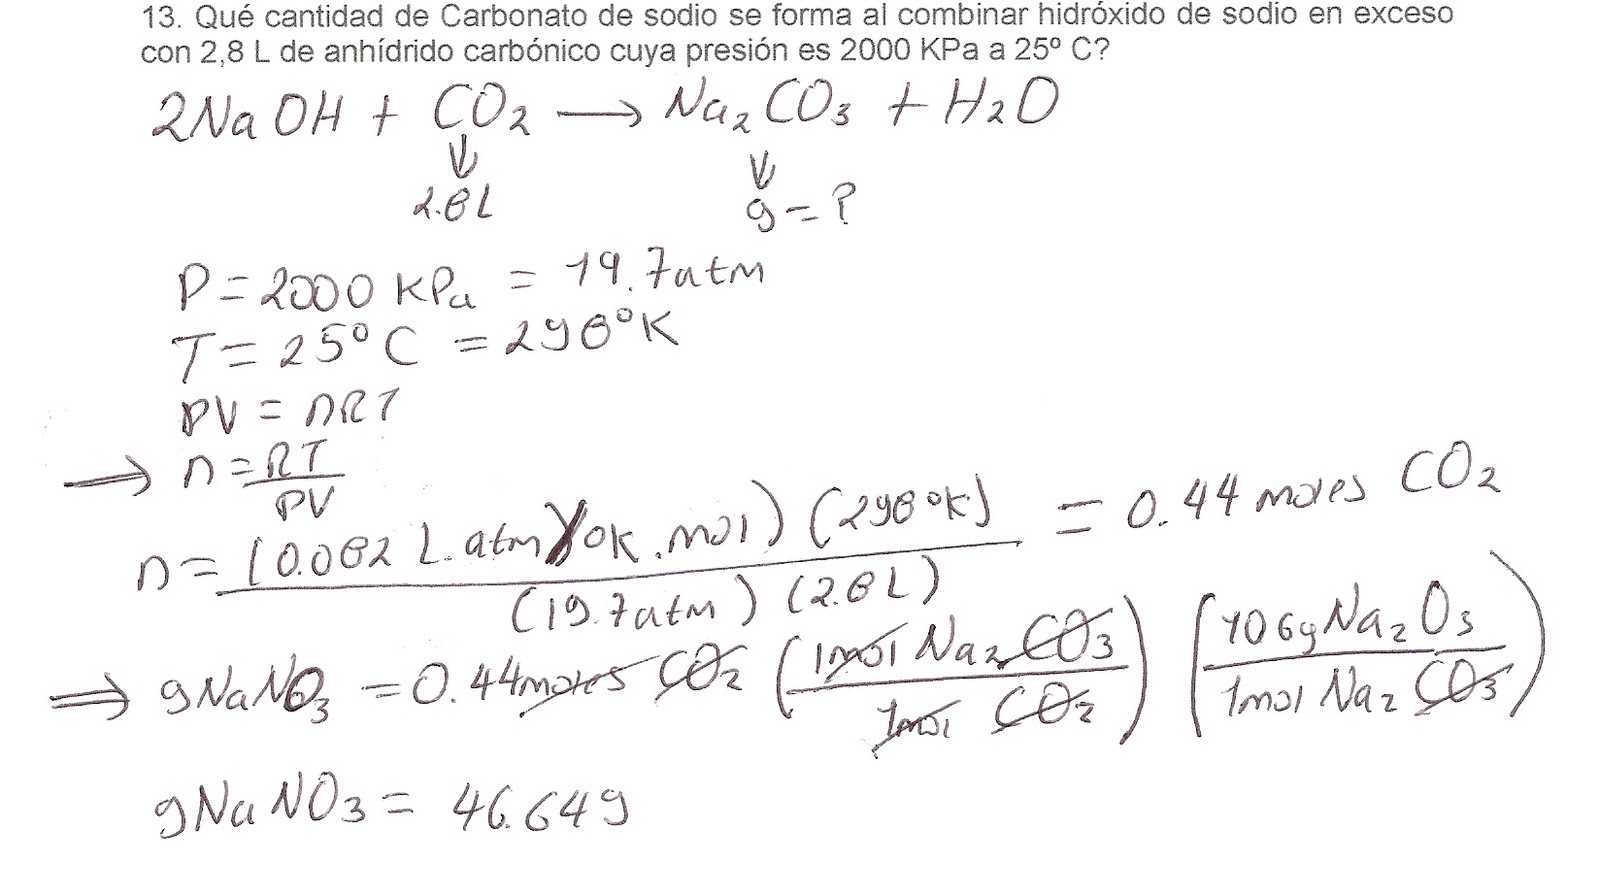 13. Qué cantidad de Carbonato de sodio se forma al combinar hidróxido de sodio en exceso
con 2,8 L de anhídrido carbónico cuya presión es 2000 KPa a 25º C?
2NaOH + CO₂ → Na₂CO₃ + H₂O
↓ ↓
2.8L g=?
P = 2000 KPa = 19.7atm
T = 25°C = 298°K
PV = nRT
⇒ n = RT/PV
n = (0.082 L.atm/°K.mol) (298°K) / (19.7atm) (2.8L) = 0.44 moles CO₂
⇒ gNaNO₃ = 0.44moles CO₂ (1mol Na₂CO₃ / 1mol CO₂) (106g Na₂O₃ / 1mol Na₂CO₃)
gNaNO₃ = 46.64g